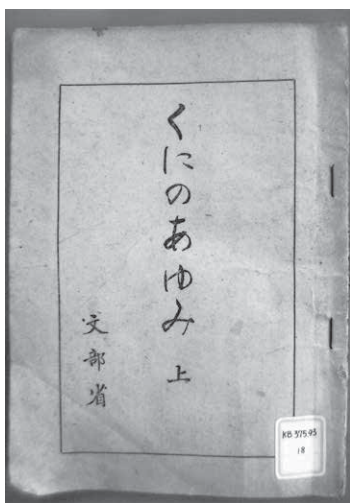 くにのあゆみ 上
文部省
KB 375.93
18